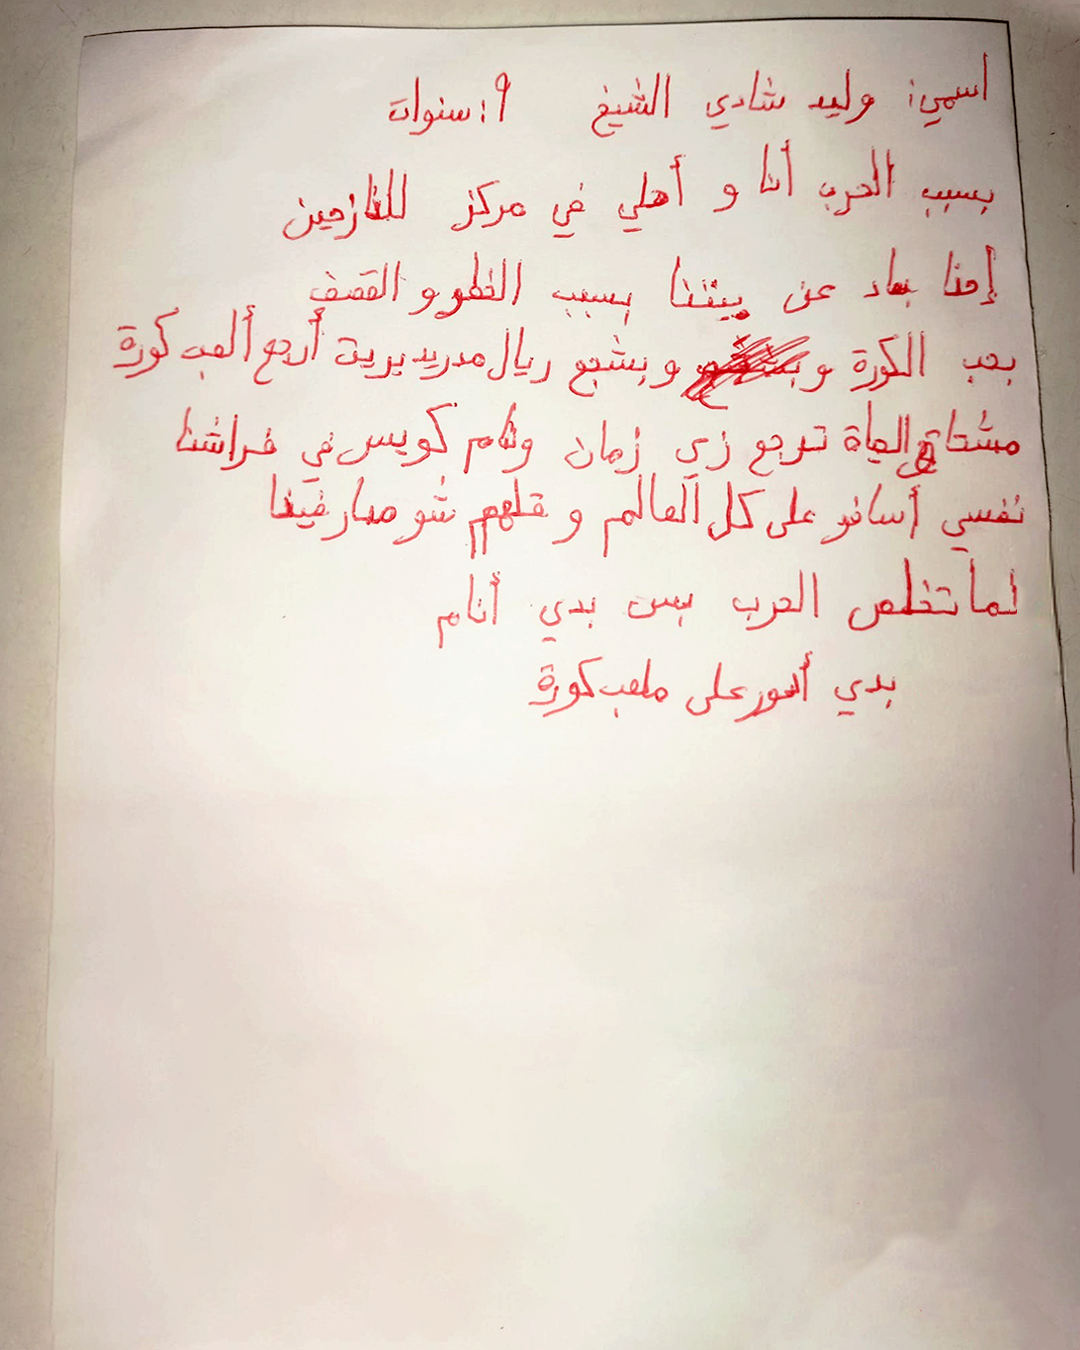 اسمي: وليد شادي الشيخ ٩: سنوات
بسبب الحرب أنا و أهلي في مركز للنازحين
إحنا بعاد عن بيتنا بسبب الخطر و القصف
بحب الكورة و وبشجع ريال مدريد بريت أرجع ألعب كورة
مشتاق الحياة ترجع زي زمان ونام كويس في فراشنا
نفسي أسافر على كل العالم و قلهم شو صار فينا
لما تخلص الحرب بس بدي أنام
بدي أحور على ملعب كورة